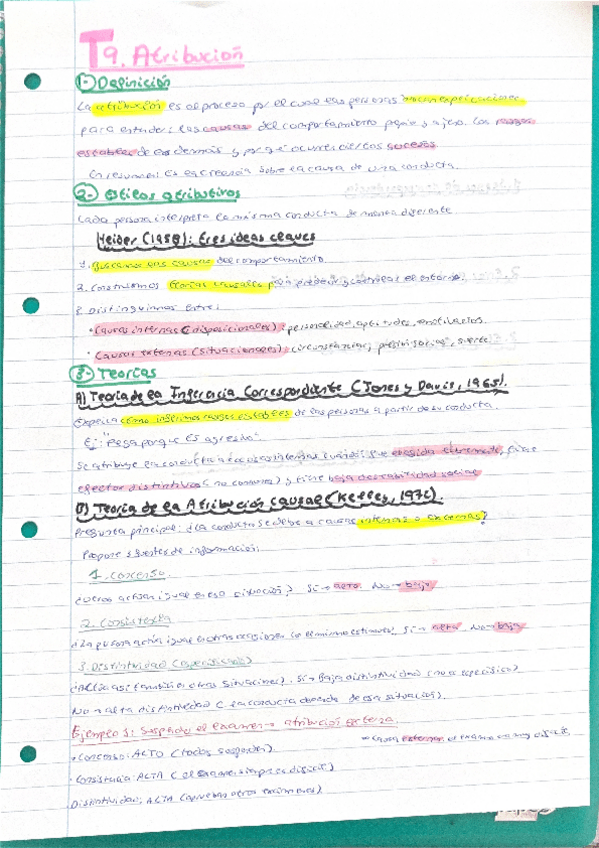 T9. Atribución
1- Definición
La atribución es el proceso por el cual las personas buscan explicaciones
para entender: las causas del comportamiento propio y ajeno. Los rasgos
estables de los demás y por qué ocurren ciertos sucesos.
En resumen: Es la creencia sobre la causa de una conducta.
2- Estilos atributivos
Cada persona interpreta la misma conducta de manera diferente
Heider (1958): tres ideas claves
1. Buscamos las causas del comportamiento.
2. Construimos teorías causales para predecir y controlar el entorno.
3. Distinguimos entre:
• Causas internas (disposicionales): personalidad, aptitudes, motivación.
• Causas externas (situacionales): circunstancias, presión social, suerte.
3- Teorías
A) Teoría de la Inferencia Correspondiente (Jones y Davis, 1965).
Explica cómo inferimos rasgos estables de las personas a partir de su conducta.
Ej: "Pega porque ES agresivo".
Se atribuye la conducta a causas internas cuando: fue elegida libremente, tiene
efectos distintivos (no comunes) y tiene baja deseabilidad social
B) Teoría de la Atribución causal (Kelley, 1972).
Pregunta principal: ¿La conducta se debe a causas internas o externas?
Propone 3 fuentes de información:
1. Consenso.
¿Otros actúan igual en esa situación? Sí → alto No → bajo
2. Consistencia
¿La persona actúa igual en otras ocasiones con el mismo estímulo? Sí → alta No → baja
3. Distintividad (especificidad)
¿Actúa así también en otras situaciones? Sí → Baja distintividad (no es específico)
No → alta distintividad (la conducta depende de esa situación).
Ejemplo 1: Suspendo el examen → atribución externa.
→ Causa externa: el examen es muy difícil.
• Consenso: ALTO (todos suspenden).
• Consistencia: ALTA (el examen siempre es difícil)
Distintividad: ALTA (apruebas otros exámenes)